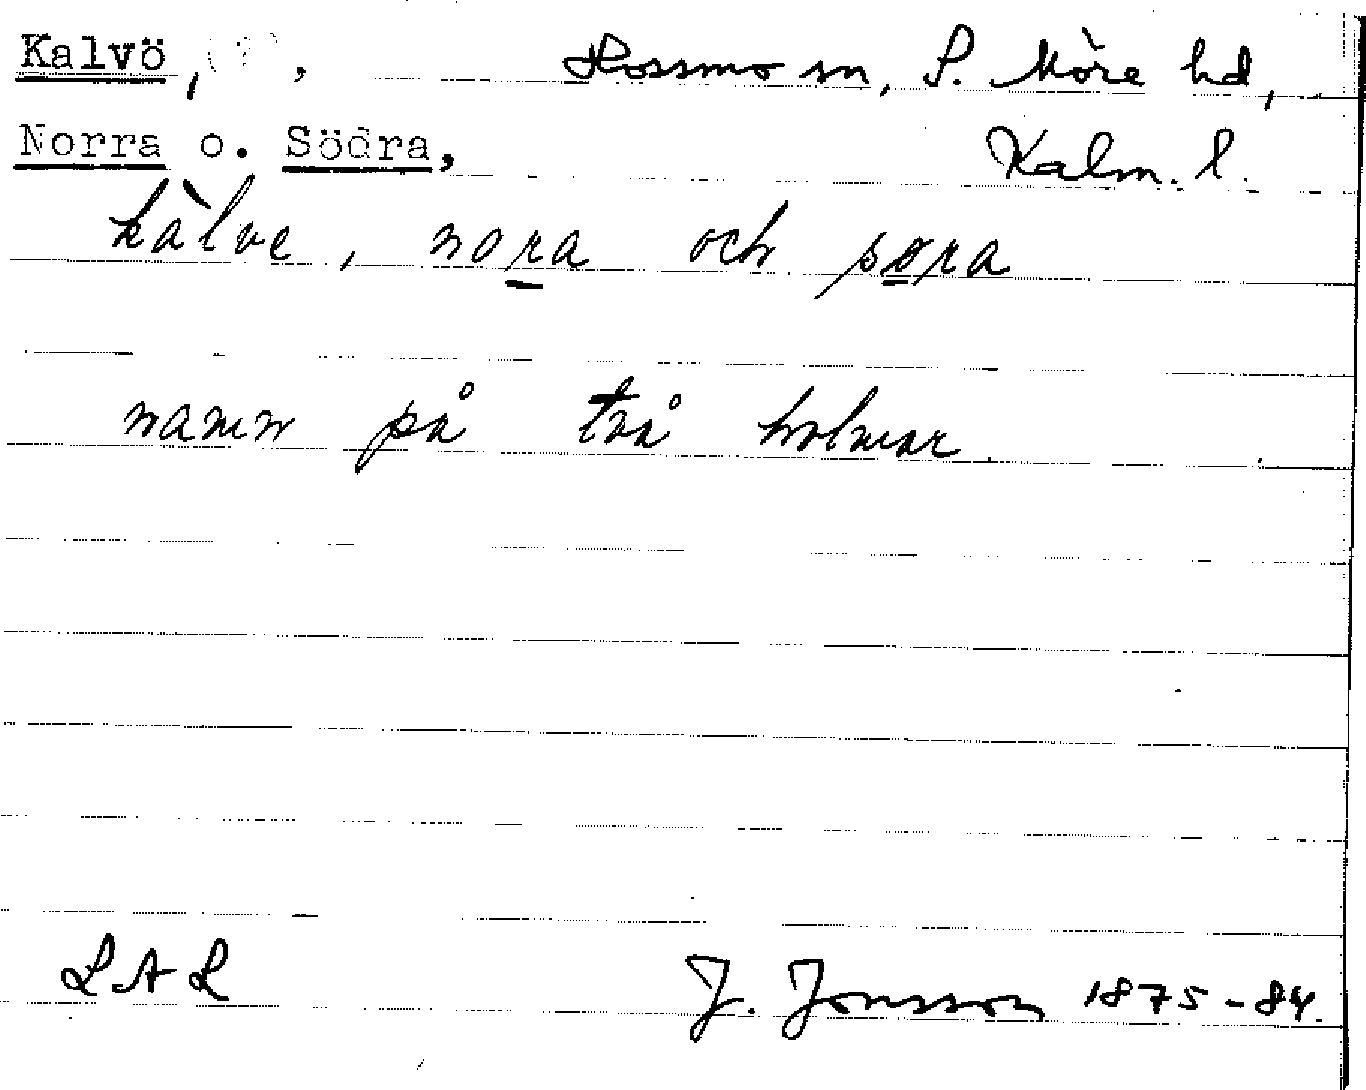 Kalvö, (?), Hossmo sn, S. Möre hd,
Norra o. Södra, Kalm. l.
kàlve, nora och søra
namn på två holmar.
LAL J. Jonsson 1875-84.